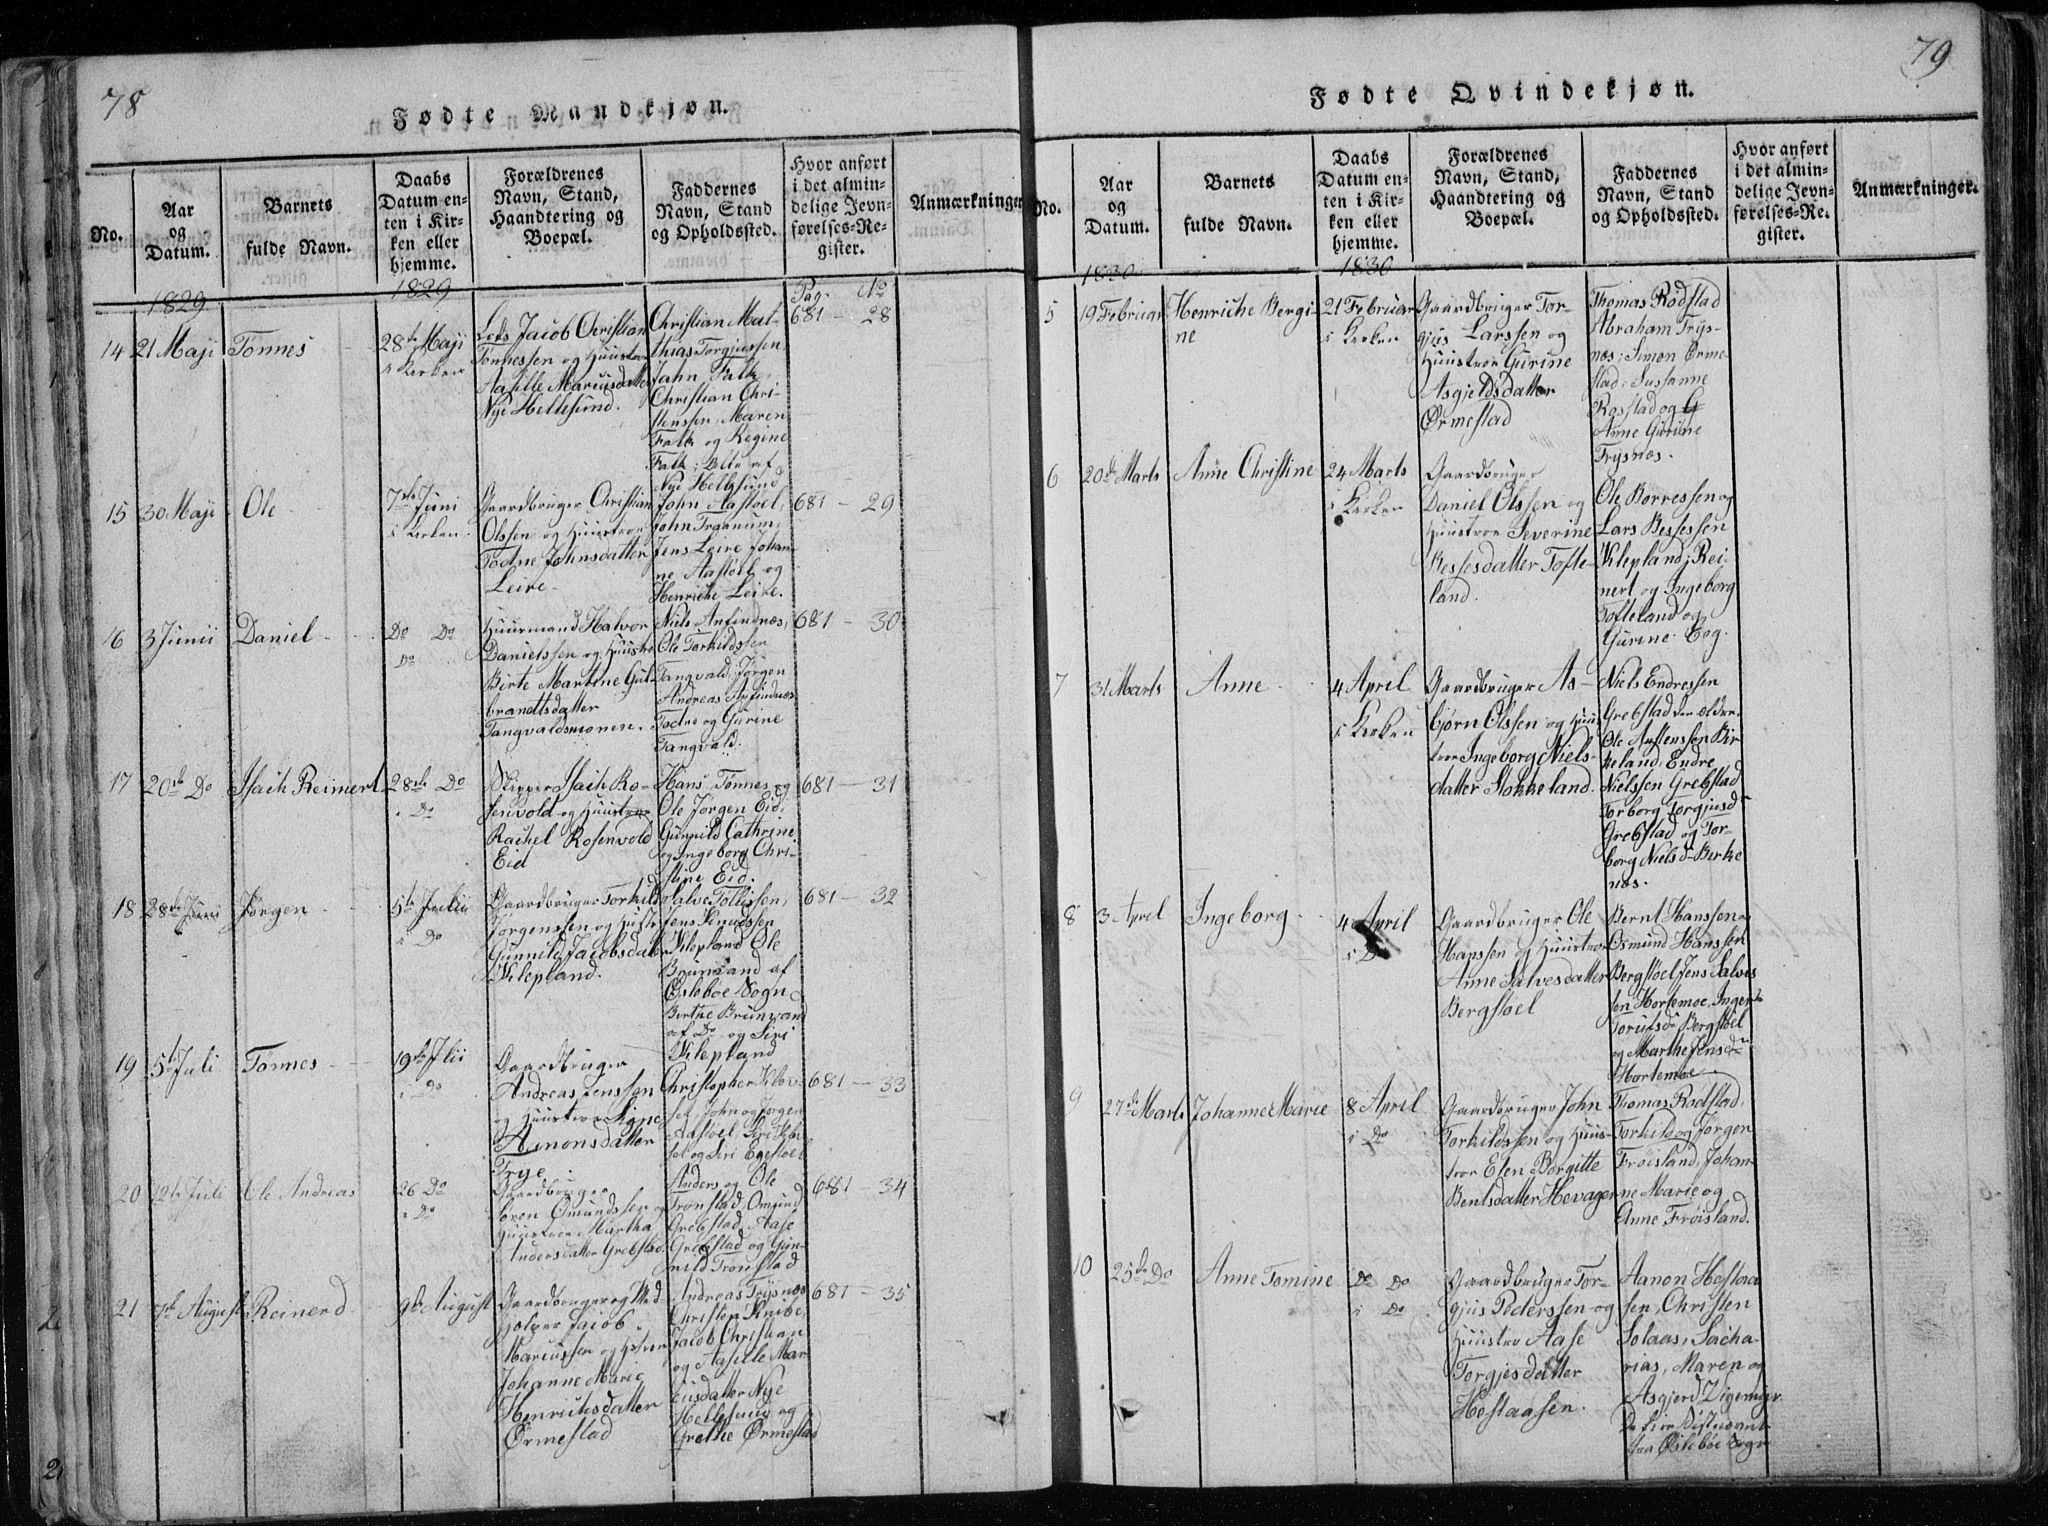 78
Fødte Mandkjøn.
No.
Aar
og
Datum.
Barnets
fulde Navn.
Daabs
Datum en-
ten i Kir-
ken eller
hjemme.
Forældrenes
Navn, Stand,
Haandtering og
Boepæl.
Faddernes
Navn, Stand
og Opholdssted.
Hvor anført
i det almin-
delige Jevn-
førelses-Re-
gister.
Anmærkninger
1829
1829
Pag. No
14
21 Maji
Tønnes
28de Maji
i Kirken
Lods Jacob Christian
Tønnessen og Huustroe
Aasille Marcusdatter
Nye Hellesund.
Christian Mat-
thias Torgjussen
Jahn Falk,
Christian Chri-
stenssen, Maren
Falk og Regine
Falk; Alle af
Nye Hellesund
681 - 28
15
30 Maji
Ole
7de Juni
i Kirken.
Gaardbruger Christian
Olssen og Huustroe
Todne Johnsdatter
Leire.
John Aastøel,
John Traanum,
Jens Leire, Johan-
ne Aastøel og
Henriche Leire.
681 - 29
16
3 Junii
Daniel
Do Do
Do
Huusmand Halvor
Danielssen og Huustroe
Birte Martine Gul-
brandtsdatter
Tangvaldsmonen.
Niels Anfindnæs,
Ole Torkildssen
Tangvald, Jørgen
Andreas Anfindnæs
Todne og Gurine
Tangvald.
681 - 30
17
20de Do
Isach Reinert
28de Do
i Do
Skipper Isach Ro-
senvold og Huustroe
Rachel Rosenvold
Eid
Hans Tønnes og
Ole Jørgen Eid,
Gunnild Cathrine
og Ingeborg Chri-
stine Eid.
681 - 31
18
28de Juni
Jørgen
5te Julii
i Do
Gaardbruger Torkild
Jørgenssen og Hustr.
Gunnild Jacobsdatter
Klepland.
Salve Tollissen,
Jens Knudssen
Klepland Ole
Brunvand af
Øslebøe Sogn,
Birthe Brunvand
af Do og Siri
Klepland
681 - 32
19
5te Juli
Tønnes
19de Julii
i Do
Gaardbruger
Andreas Jenssen
og Huustroe Signe
Aanonsdatter
Trye
Christopher
John og Jørgen
Aastøel, Siri
og Siri Egestøel
681 - 33
20
12te Juli
Ole Andreas
26 Do
i Do
Gaardbruger
Søren Omundssen og
Huustroe Martha
Andersdatter Grebstad.
Anders og Ole
Tronstad, Omund
Grebstad, Aase
Grebstad og Gun-
nild Tronstad
681 - 34
21
7de August
Reinerd
9de August
Gaardbruger og Med-
hjelper Jacob
Marcussen og Hustroe
Johanne Marie
Henrichsdatter
Ørmestad
Andreas Trysnæs
Christen Knibe,
Jacob Christian
og Aasille Mar-
cusdatter Nye
Hellesund og
Grethe Ørmestad
681 - 35
79
Fødte Qvindekjøn.
No.
Aar
og
Datum.
Barnets
fulde Navn.
Daabs
Datum en-
ten i Kir-
ken eller
hjemme.
Forældrenes
Navn, Stand,
Haandtering og
Boepæl.
Faddernes
Navn, Stand
og Opholdssted.
Hvor anført
i det almin-
delige Jevn-
førelses-Re-
gister.
Anmærkninger.
1830
1830
5
19 Februar
Henriche Bergi-
ne
21 Februar
i Kirken
Gaardbruger Tor-
gjus Larssen og
Huustroe Gurine
Asgjeldsdatter
Ørmestad
Thomas Rødstad
Abraham Trys-
næs; Simon Ørme-
stad; Susanne
Rosstad og G
Anne Gurine
Trysnæs.
6
20de Marts
Anne Christine
24 Marts
i Kirken
Gaardbruger
Daniel Olssen og
Huustroe Severine
Bessesdatter Tofte-
land.
Ole Borressen og
Lars Bessessen
Klepland; Rei-
nert og Ingeborg
Tofteland og
Gurine Eeg.
7
31 Marts
Anne
4 April
i Kirken
Gaardbruger As-
bjørn Olssen og Huus-
troe Ingeborg Niels-
datter Stokkeland.
Niels Endressen
Grebstad den ælder,
Ole Austenssen Bir-
keland, Endre
Nielssen Grebstad
Torborg Torgjusd
Grebstad og Tor-
borg Nielsd Birke
næs.
8
3 April
Ingeborg
4 April
i Do
Gaardbruger Ole
Hanssen og Huustroe
Anne Salvesdatter
Bergstøel
Bernt Hanssen og
Osmund Hanssen
Bergstøel, Jens Salves-
sen Hortemoe, Inger
Bergstøel
og Marthe Jensdr
Hortemoe
9
27de Marts
Johanne Marie
8 April
i Do
Gaardbruger John
Torkildssen og Huus-
troe Elen Bergitte
Bentsdatter Hevager
Thomas Rødstad,
Torkild og Jørgen
Frøisland, Johan-
ne Marie og
Anne Frøisland.
10
25de Do
Anne Tomine
Do Do
i Do
Gaardbruger Tor-
gjus Pederssen og
Huustro Aase
Torgjesdatter
Hestaasen.
Aanon Hestaa
sen, Christen
Solaas, Sacha-
rias, Maren og
Asgjerd Vigemyr
De tre Sidstnævnte
fra Øslebøe Sogn